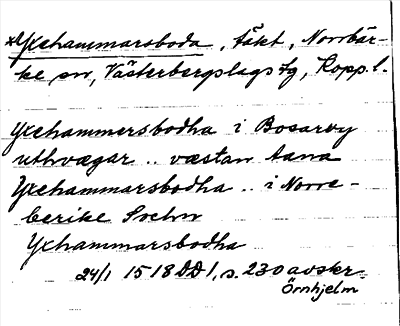 *Yxehammarsboda, täkt, Norrbär-
ke sn, Västerbergslags tg, Kopp. l.
Yxehammersbodha i Bosarvy
uthvægar .. væstan aana
Yxehammarsbodha .. i Norre-
berike Sochn
Yxehammarsbodha
24/1 1518 DD 1, s. 230 avskr.
Örnhjelm